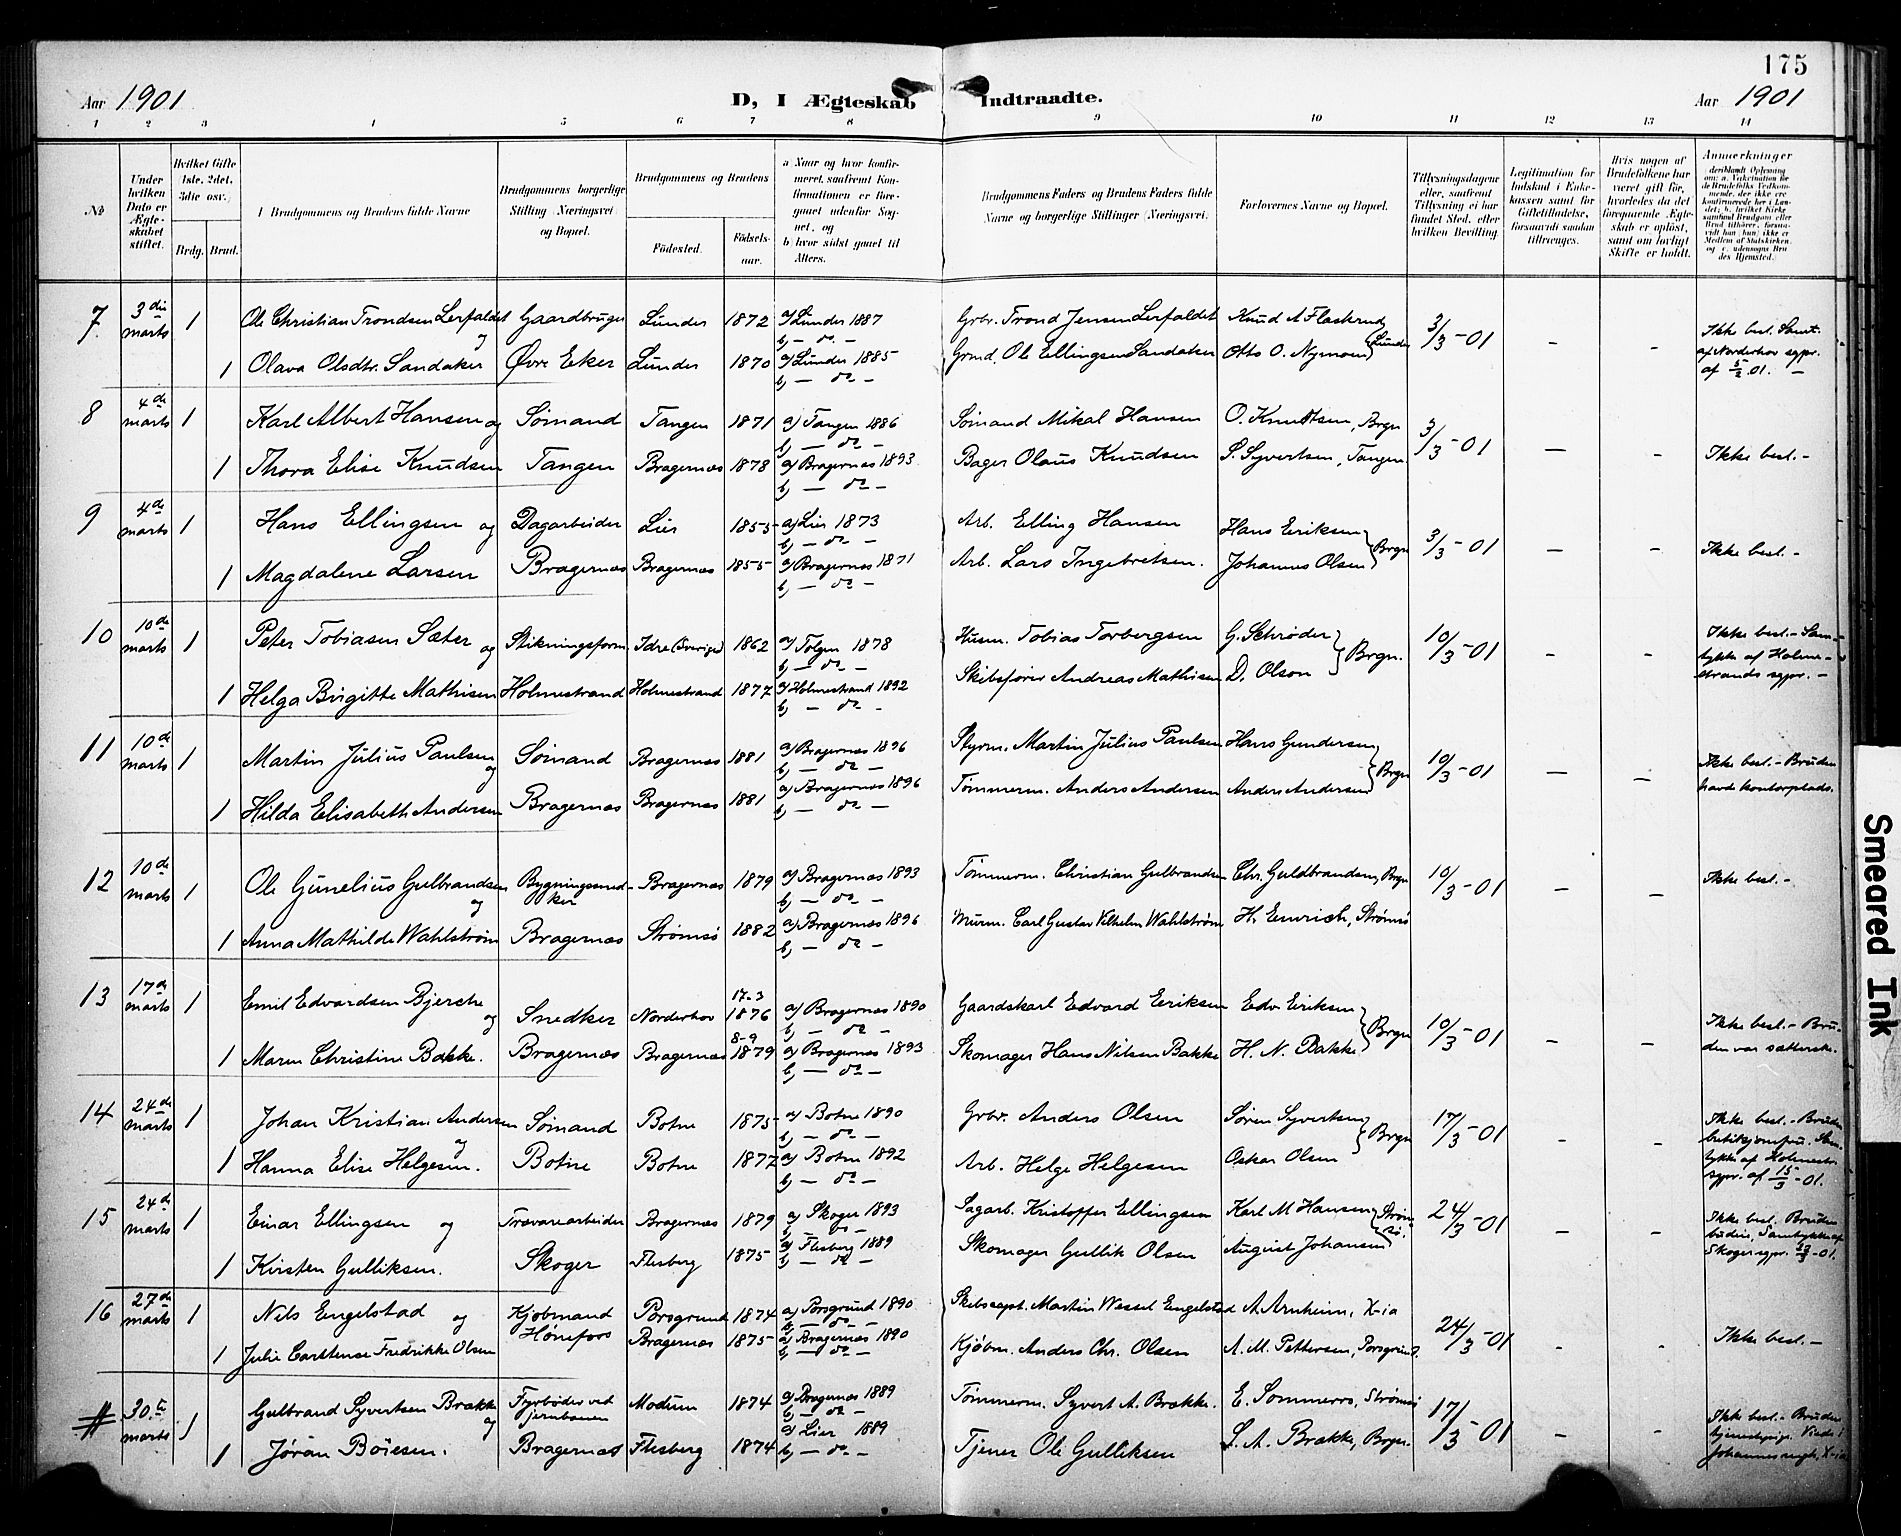 175
Aar 1901
D, I Ægteskab Indtraadte.
Aar 1901
1 2 3 4 5 6 7 8 9 10 11 12 13 14
No
Under hvilken Dato er Ægteskabet stiftet.
Hvilket Gifte 1ste, 2det, 3die osv.
Brdg. Brud.
Brudgommens og Brudens fulde Navne
Brudgommens borgerlige Stilling (Næringsvei) og Bopæl.
Brudgommens og Brudens
Fødested.
Fødselsaar.
a Naar og hvor konfirmeret, saafremt Konfirmationen er foregaaet udenfor Sognet, og
b) hvor sidst gaaet til Alters.
Brudgommens Faders og Brudens Faders fulde Navne og borgerlige Stillinger (Næringsvei).
Forlovernes Navne og Bopæl.
Tillysningsdagene eller, saafremt Tillysning ei har fundet Sted, efter hvilken Bevilling.
Legitimation for Indskud i Enkekassen samt for Giftetilladelse, forsaavidt saadan tiltrænges.
Hvis nogen af Brudefolkene har været gift før, hvorledes da det foregaaende Ægteskab er opløst, samt om lovligt Skifte er holdt.
Anmerkninger
7 3die marts 1 Ole Christian Trondsen Lerfaldet og Gaardbruger Lunder 1872 a) Lunder 1887 b) — do — Grbr. Trond Jensen Lerfaldet Knud A Flaskerud 3/3-01 - -
1 Olava Olsdtr. Sandaker Øvre Eker Lunder 1870 a) Lunder 1885 b) — do — Grmd Ole Ellingsen Sandaker Otto O. Nymoen } Lunder
Ikke besl. Samt. af Norderhov sgpr. af 5/2 01. —
8 4de marts 1 Karl Albert Hansen og Sømand Tangen 1871 a) Tangen 1886 b) — do — Sømand Mikal Hansen O. Knudtsen, Brgn 3/3-01 — -
1 Thora Elise Knudsen Tangen Bragernæs 1878 a) Bragernæs 1893 b) — do — Bager Olaus Knudsen S. Syvertsen, Tangen Ikke besl. -
9 4de marts 1 Hans Ellingsen og Dagarbeider Lier 1855 a) Lier 1873 b) — do — Arb. Elling Hansen Hans Eriksen 3/3-01 — -
1 Magdalene Larsen Bragernæs Bragernæs 1855 a) Bragernæs 1871 b) — do — Arb. Lars Ingebretsen. Johannes Olsen } Brgn Ikke besl. -
10 10de marts 1 Peter Tobiasen Sæter og Stikningsform. Idre (Sverige) 1862 a) Tolgen 1878 b) — do — Husm. Tobias Torbergsen G. Schrøder 10/3-01 - -
1 Helga Birgitte Mathisen Holmestrand Holmestrand 1877 a) Holmestrand 1892 b) — do — Skibsfører Andreas Mathisen D. Olson } Brgn.
Ikke besl. - Samtykke af Holmestrands sgpr. -
11 10de marts 1 Martin Julius Paulsen og Sømand Bragernæs 1881 a) Bragernæs 1896 b) — do — Styrm. Martin Julius Paulsen Hans Gundersen 10/3-01 — —
1 Hilda Elisabeth Andersen Bragernæs Bragernæs 1881 a) Bragernæs 1896 b) — do — Tømmerm. Anders Andersen Anders Andersen } Brgn
Ikke besl. - Bruden havde kontorplads.
12 10de marts 1 Ole Gunelius Gulbrandsen og Bygningssnedker Bragernæs 1879 a) Bragernæs 1893 b) — do — Tømmerm. Christian Gulbrandsen Chr. Guldbrandsen, Brgn 10/3-01 — — Ikke besl. -
1 Anna Mathilde Wahlstrøm Bragernæs Strømsø 1882 a) Bragernæs 1896 b) — do — Murm. Carl Gustav Vilhelm Wahlstrøm H. Emrich, Strømsø
13 17de marts 1 Emil Edvardsen Bjerche og Snedker Norderhov 17-3 1876 a) Bragernæs 1890 b) — do — Gaardskarl Edvard Eriksen Edv. Eriksen 10/3-01 - -
1 Maren Christine Bakke. Bragernæs Bragernæs 8-9 1879 a) Bragernæs 1893 b) — do — Skomager Hans Nilsen Bakke H. N. Bakke } Brgn
Ikke besl. - Bruden var sætterske.
14 24de marts 1 Johan Kristian Andersen og Sømand Botne 1875 a) Botne 1890 b) — do — Grbr. Anders Olsen Søren Syvertsen 17/3-01 - -
1 Hanna Elise Helgesen. Botne Botne 1877 a) Botne 1892 b) — do — Arb. Helge Helgesen Oskar Olsen } Brgn
Ikke besl. - Bruden butiksjomfru. Samtykke af Holmestr. sgpr. af 15/3-01.
15 24de marts 1 Einar Ellingsen og Trævarearbeider Bragernæs 1879 a) Skoger 1893 b) do — Sagarb. Kristoffer Ellingsen Karl M Hansen 24/3-01 - -
1 Kirsten Gulliksen. Skoger Flesberg 1875 a) Flesberg 1889 b) — do — Skomager Gullik Olsen August Johansen } Strømsø.
Ikke besl. Bruden budeie, Samtykke af Skoger sgpr. 23/3-01.
16 27de marts 1 Nils Engelstad og Kjøbmand Porsgrund 1874 a) Porsgrund 1890 b) — do — Skibscapt. Martin Wessel Engelstad A. Arnheim, X-ia 24/3-01 - -
1 Julie Carthense Fredrikke Olsen Hønefoss Bragernæs 1875 a) Bragernæs 1890 b) — do — Kjøbm. Anders Chr. Olsen A. M. Pettersen, Porsgrund. Ikke besl. —
# 30te marts 1 Gulbrand Syvertsen Brække og Fyrbøder ved jernbanen Modum 1874 a) Bragernæs 1889 b) — do — Tømmerm. Syvert A. Brække. E. Sommerro, Strømsø 17/3-01 - -
1 Jøran Boiesen. Bragernæs Flesberg 1874 a) Lier 1889 b) — do — Tjener Ole Gulliksen S. A. Brække, Brgn.
Ikke besl. - Bruden tjenestepige. Viede i Johannes X-ia
Smeared Ink